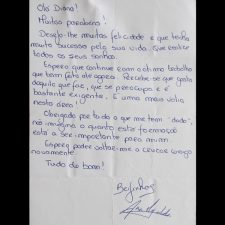 Olá Diana!
Muitos parabéns!
Desejo-lhe muitas felicidades e que tenha
muito sucesso pela sua vida. Que realize
todos os seus sonhos.
Espero que continue com o ótimo trabalho
que tem feito até agora. Percebe-se que gosta
daquilo que faz, que se preocupa e é
bastante exigente. É uma mais valia
nesta área!
Obrigado por tudo o que me tem "dado",
não imagina o quanto esta
está a ser importante para mim.
Espero poder voltar-me a cruzar consigo
novamente.
Tudo de bom!
Beijinhos